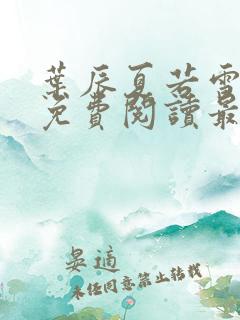 葉辰夏若雪
免費閱讀最
晏適
未經同意禁止轉載